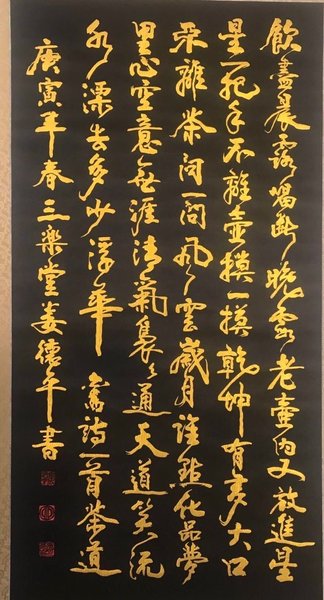 飲盡晨露喝晚雲老壺內又放進星
星一把手不離壺摸一摸乾坤有多大口
不離茶問一問風雲歲月誰點化品夢
里心空意無涯清氣裊裊通天道笑流
水漂去多少浮華 舊詩一首茶道
庚寅年春三樂堂婁德平書